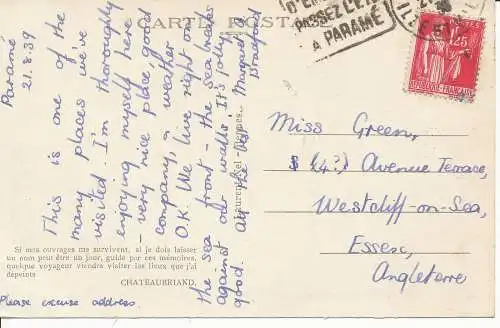 CARTE POSTALE
PASSEZ L'ÉTÉ
A PARAMÉ
1F25
POSTES
RÉPUBLIQUE FRANÇAISE
Paramé
21.8.39
This is one of the
many places we've
visited. I'm thoroughly
enjoying myself here
– very nice place, good
company, & weather
O.K. We live right on
the sea front – the sea breaks
against our walls! It's jolly
good. All the best. Margaret
Bradford
Laurent-Nel - Rennes
Miss Green,
Avenue Terrace,
Westcliff-on-Sea,
Essex,
Angleterre
Si mes ouvrages me survivent, si je dois laisser
un nom peut être un jour, guidé par ces mémoires,
quelque voyageur viendra visiter les lieux que j'ai
dépeints
CHATEAUBRIAND.
Please excuse address